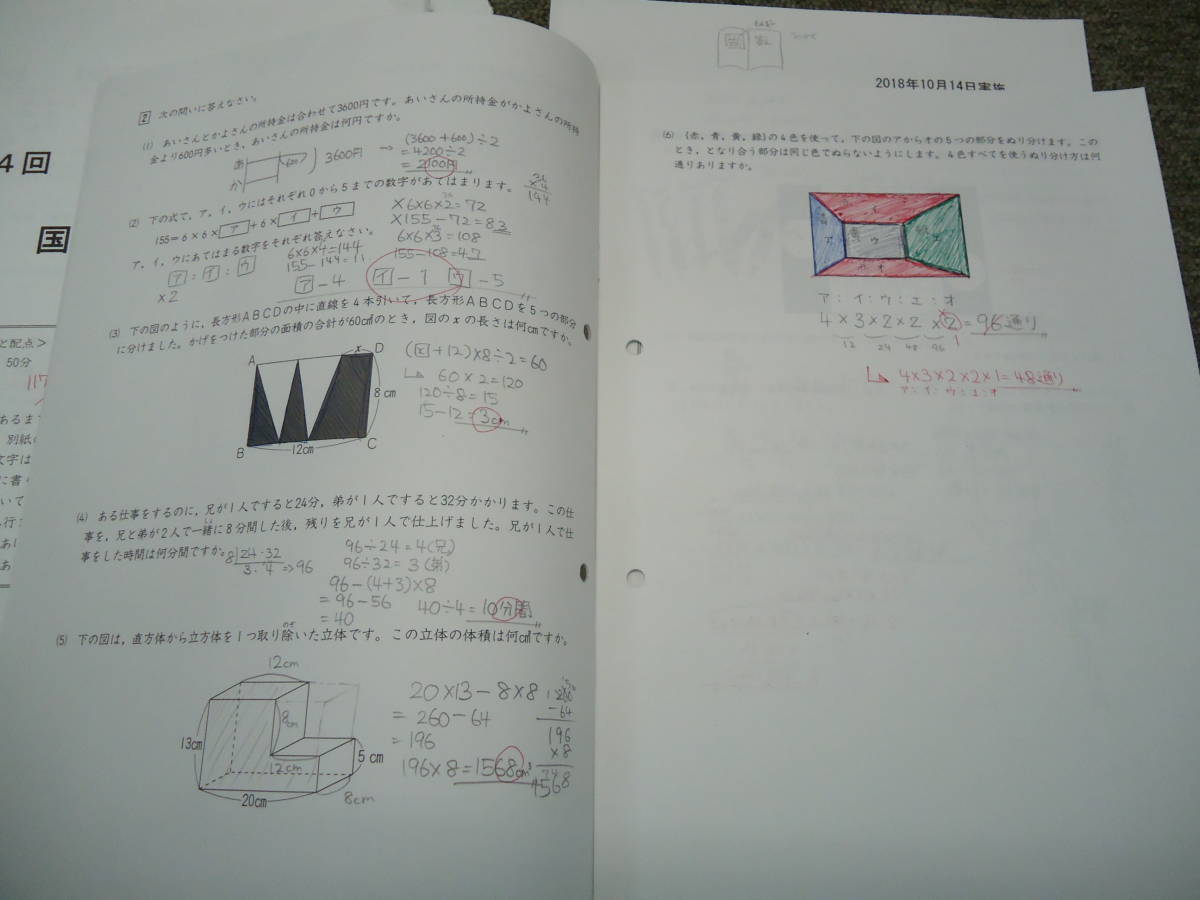 4回
国
と配点＞
50分
117
2018年10月14日実施
2 次の問いに答えなさい。
(1) あいさんとかよさんの所持金は合わせて3600円です。あいさんの所持金がかよさんの所持
金より600円多いとき，あいさんの所持金は何円ですか。
あ
か
3600円
→ (3600+600)÷2
= 4200÷2
= 2100円
36
×4
144
(2) 下の式で，ア，イ，ウにはそれぞれ0から5までの数字があてはまります。
155＝6×6×ア＋6×イ＋ウ
ア，イ，ウにあてはまる数字をそれぞれ答えなさい。
ア : イ : ウ
×2
6×6×4=144
155-144=11
×6×6×2=72
×155-72=83
6×6×3=108
155-108=47
ア-4 イ-1 ウ-5
(3) 下の図のように，長方形ABCDの中に直線を4本引いて，長方形ABCDを5つの部分
に分けました。かげをつけた部分の面積の合計が60㎠のとき，図のxの長さは何cmですか。
A
x
D
8cm
B
12cm
C
(x+12)×8÷2=60
60×2=120
120÷8=15
15-12=3cm
(4) ある仕事をするのに，兄が1人ですると24分，弟が1人ですると32分かかります。この仕
事を，兄と弟が2人で一緒に8分間した後，残りを兄が1人で仕上げました。兄が1人で仕
事をした時間は何分間ですか。
8 24・32
3・4 ⇒96
96÷24=4(兄)
96÷32=3(弟)
96-(4+3)×8
= 96-56
= 40
40÷4=10分間
(5) 下の図は，直方体から立方体を1つ取り除いた立体です。この立体の体積は何㎤ですか。
12cm
8cm
13cm
12cm
5cm
20cm
8cm
20×13-8×8
= 260-64
= 196
196×8=1568cm³
260
-64
196
×8
1568
(6) {赤，青，黄，緑}の4色を使って，下の図のアからオの5つの部分をぬり分けます。この
とき，となり合う部分は同じ色でぬらないようにします。4色すべてを使うぬり分け方は何
通りありますか。
イ
ア
ウ
エ
オ
ア:イ:ウ:エ:オ
4×3×2×2×2=96通り
12 24 48 96 1
4×3×2×2×1=48通り
ア:イ:ウ:エ:オ